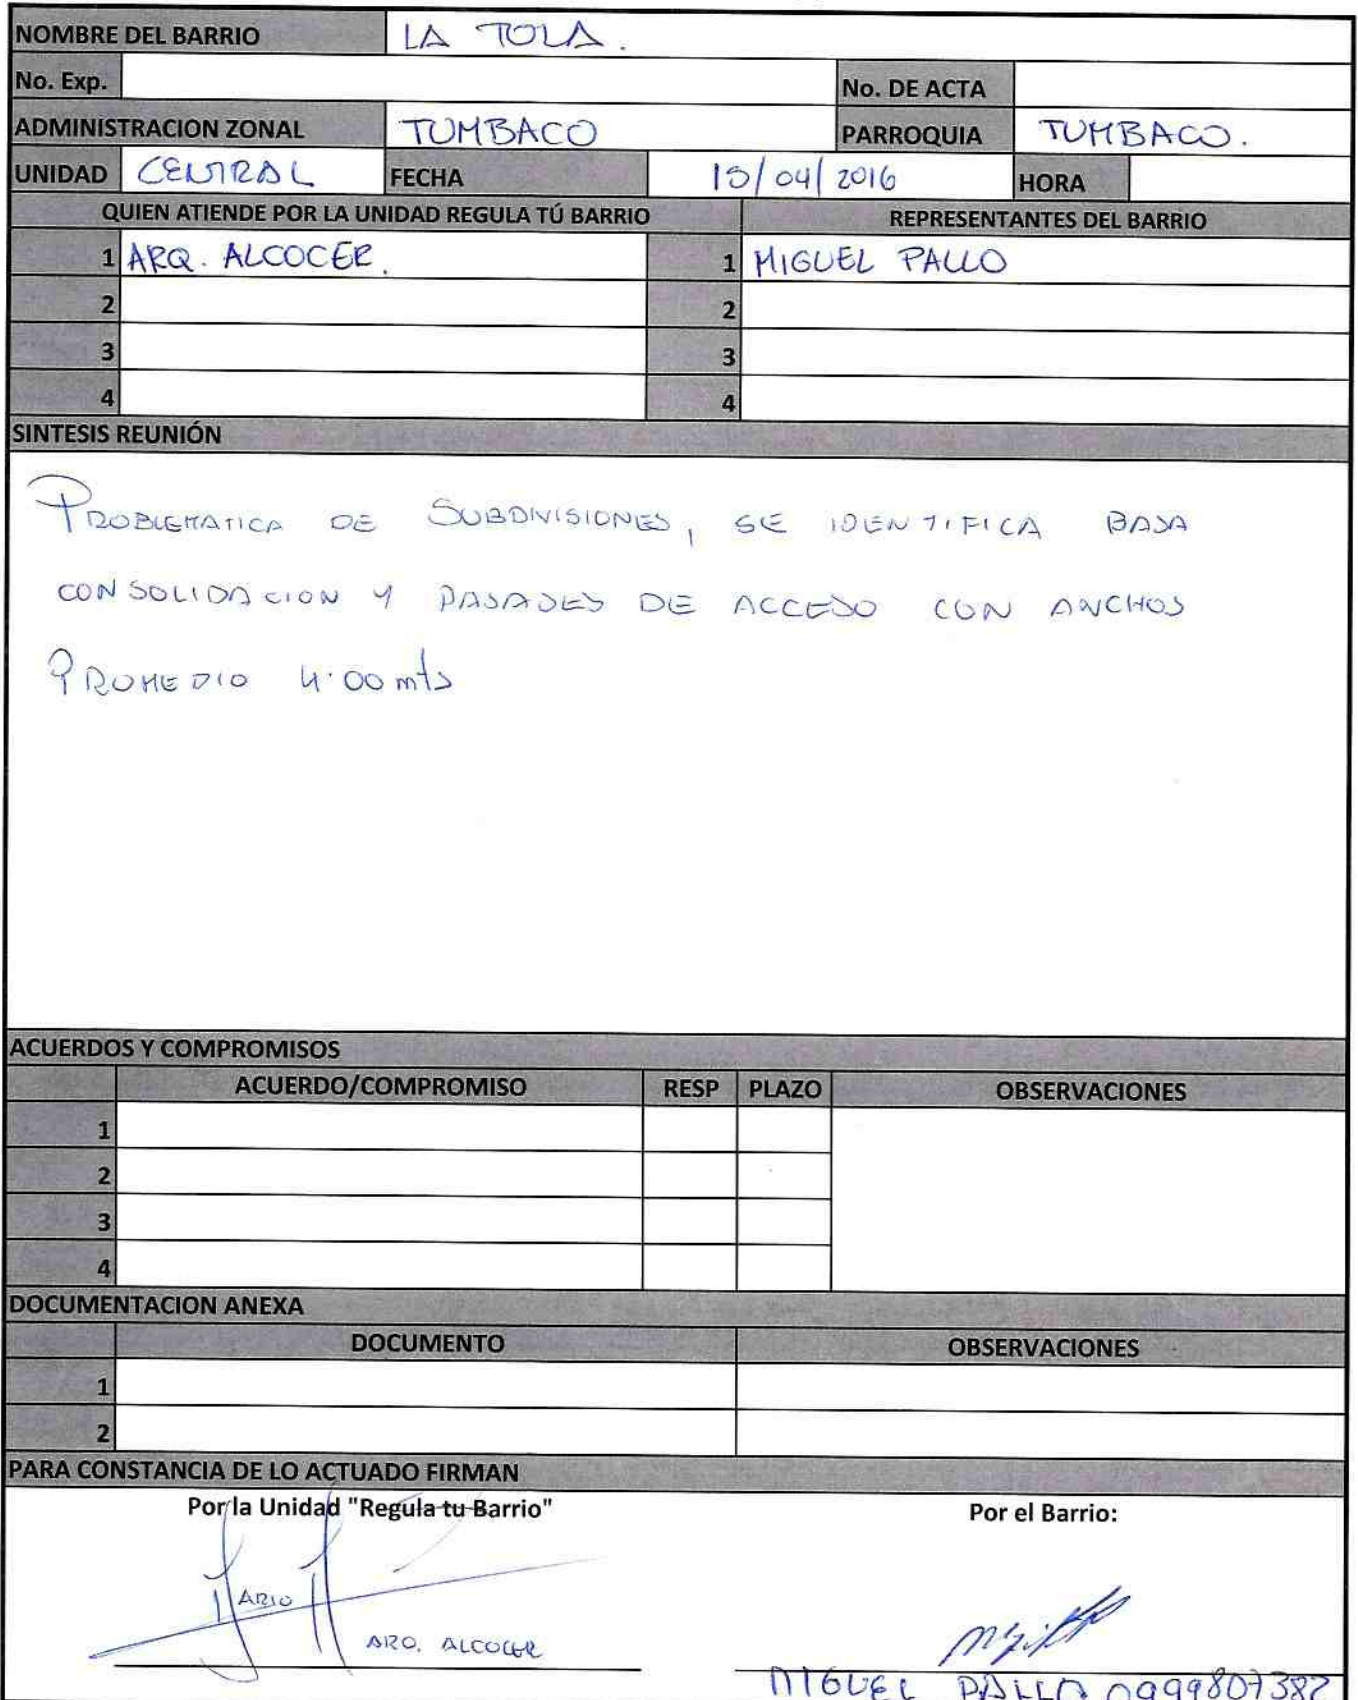 NOMBRE DEL BARRIO LA TOLA.
No. Exp. No. DE ACTA
ADMINISTRACION ZONAL TUMBACO PARROQUIA TUMBACO.
UNIDAD CENTRAL FECHA 15/04/2016 HORA
QUIEN ATIENDE POR LA UNIDAD REGULA TÚ BARRIO REPRESENTANTES DEL BARRIO
1 ARQ. ALCOCER. 1 MIGUEL PALLO
2 2
3 3
4 4
SINTESIS REUNIÓN
PROBLEMATICA DE SUBDIVISIONES, SE IDENTIFICA BAJA
CONSOLIDACION Y PASAJES DE ACCESO CON ANCHOS
PROMEDIO 4.00 mts
ACUERDOS Y COMPROMISOS
ACUERDO/COMPROMISO RESP PLAZO OBSERVACIONES
1
2
3
4
DOCUMENTACION ANEXA
DOCUMENTO OBSERVACIONES
1
2
PARA CONSTANCIA DE LO ACTUADO FIRMAN
Por la Unidad "Regula tu Barrio" Por el Barrio:
MARIO
ARQ. ALCOCER
MIGUEL PALLO 0999807382